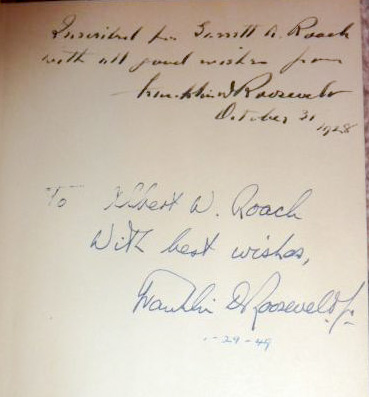 Inscribed for Garritt A. Roach
with all good wishes from
Franklin D Roosevelt
October 31
1928
To Albert W. Roach
With best wishes,
Franklin D Roosevelt Jr.
-29-49